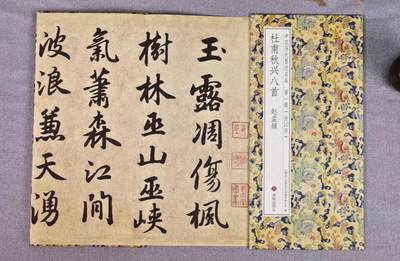 杜甫秋兴八首
赵孟頫
玉露凋傷楓
樹林巫山巫峽
氣蕭森江間
波浪蒹天湧